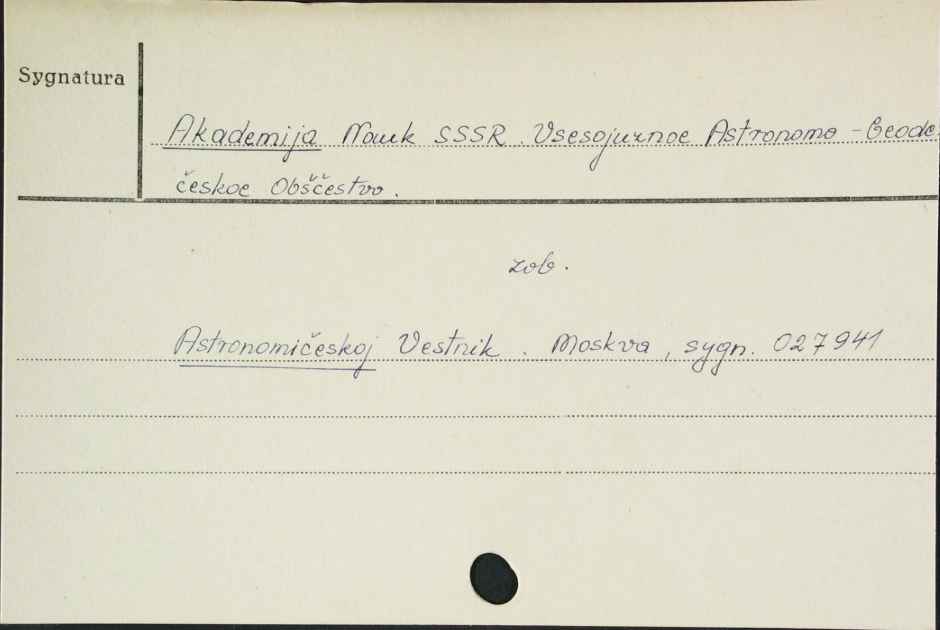 Sygnatura
Akademija Nauk SSSR. Vsesojuznoe Astronomo-Geode
českoe Obščestvo.
zob.
Astronomičeskoj Vestnik. Moskva, sygn. 027941